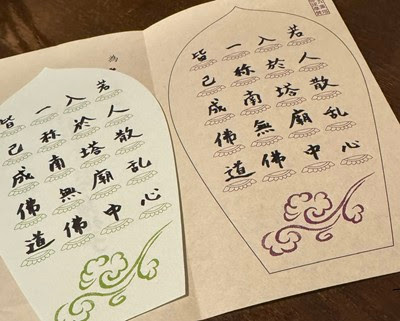 若人散乱心
入於塔廟中
一称南無佛
皆已成佛道
為
若人散乱心
入於塔廟中
一称南無佛
皆已成佛道